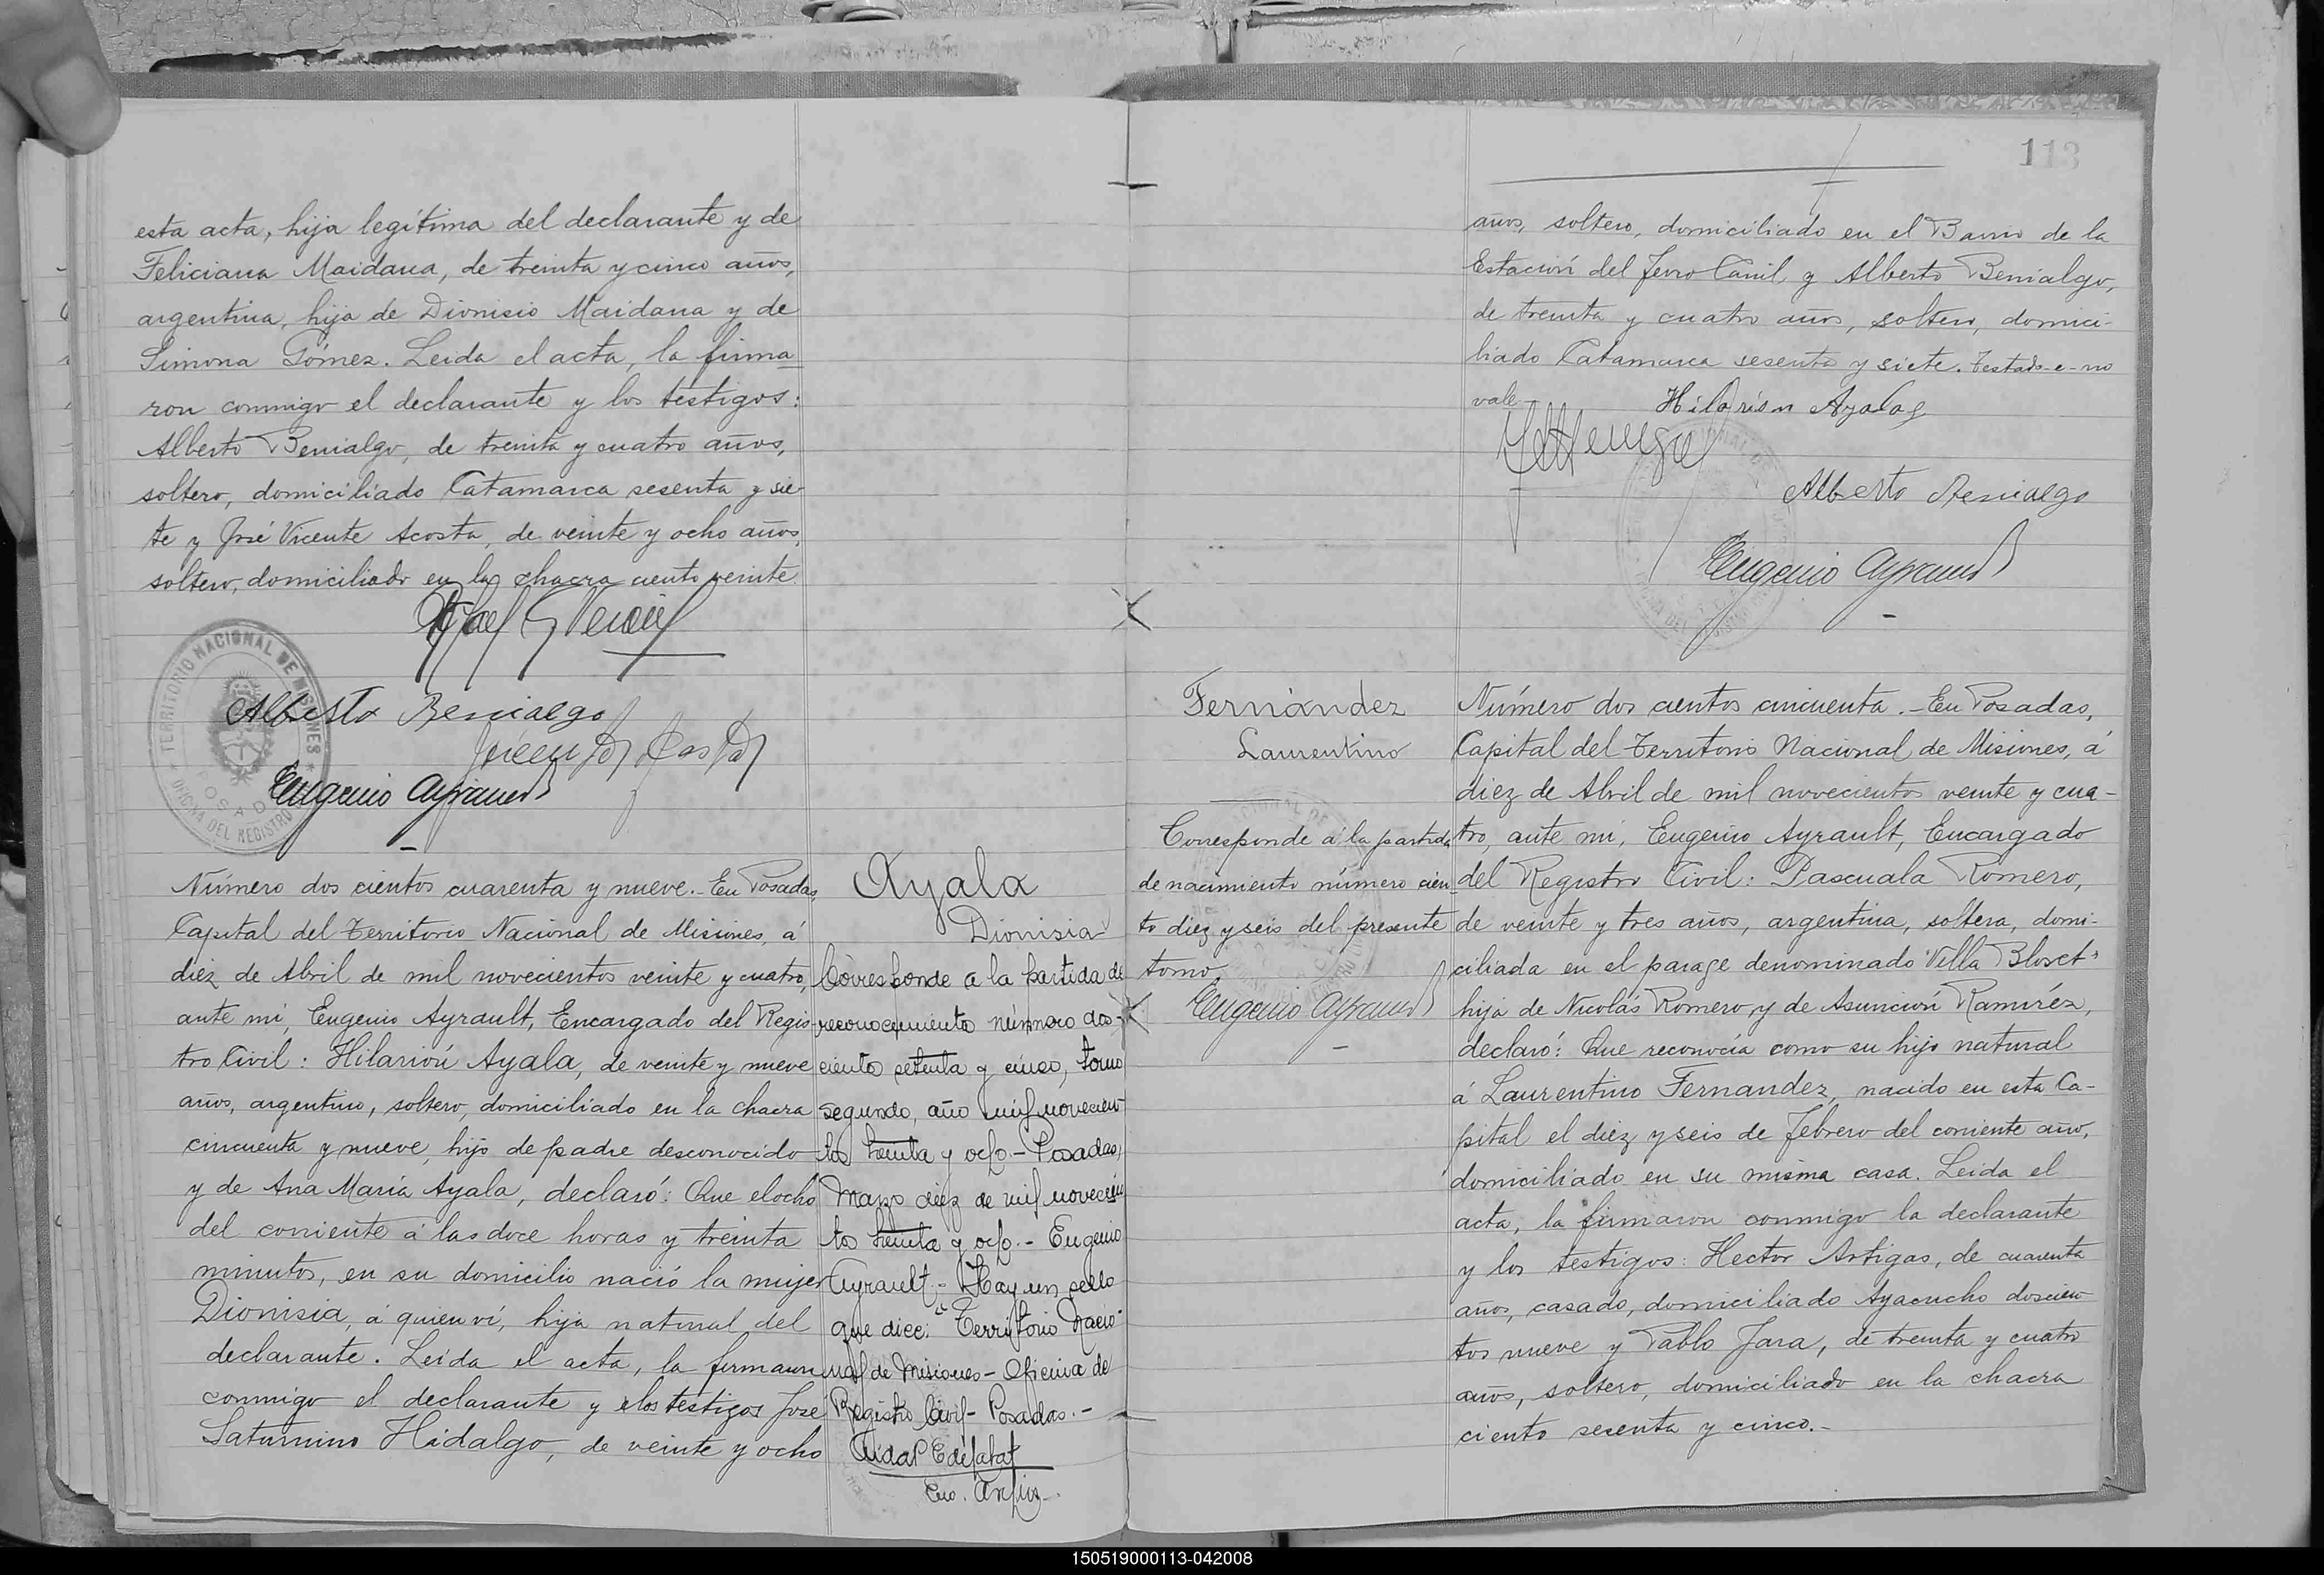 esta acta, hija legítima del declarante y de
Feliciana Maidana, de treinta y cinco años,
argentina, hija de Dionisio Maidana y de
Simona Gómez. Leida el acta, la firma
ron conmigo el declarante y los testigos:
Alberto Benialgo, de treinta y cuatro años,
soltero, domiciliado Catamarca sesenta y sie-
te y José Vicente Acosta, de veinte y ocho años,
soltero, domiciliado en la chacra ciento veinte
Alberto Benialgo
Eugenio Ayrault
TERRITORIO NACIONAL DE MISIONES
POSADAS
OFICINA DEL REGISTRO
Número dos cientos cuarenta y nueve. - En Posadas,
Capital del Territorio Nacional de Misiones, á
diez de Abril de mil novecientos veinte y cuatro,
ante mi, Eugenio Ayrault, Encargado del Regis-
tro Civil: Hilarión Ayala, de veinte y nueve
años, argentino, soltero, domiciliado en la chacra
cincuenta y nueve, hijo de padre desconocido
y de Ana María Ayala, declaró: Que el ocho
del corriente á las doce horas y treinta
minutos, en su domicilio nació la mujer
Dionisia, á quien ví, hija natural del
declarante. Leida el acta, la firmaron
conmigo el declarante y los testigos José
Saturnino Hidalgo, de veinte y ocho
Ayala
Dionisia
Corresponde a la partida de
reconocimiento número dos-
ciento setenta y cinco, tomo
segundo, año mil novecien-
tos treinta y ocho. - Posadas,
Marzo diez de mil novecien
tos treinta y ocho. - Eugenio
Ayrault. - Hay un sello
que dice: "Territorio Nacio-
nal de Misiones - Oficina de
Registro Civil - Posadas. -
113
años, soltero, domiciliado en el Barrio de la
Estación del Ferro Carril y Alberto Benialgo,
de treinta y cuatro años, soltero, domici-
liado Catamarca sesenta y siete. Testado-e-no
vale
Hilarión Ayala
Alberto Benialgo
Eugenio Ayrault
Fernández
Laurentino
Corresponde á la partida
de nacimiento número cien
to diez y seis del presente
tomo.
Eugenio Ayrault
Número dos cientos cincuenta. - En Posadas,
Capital del Territorio Nacional de Misiones, á
diez de Abril de mil novecientos veinte y cua-
tro, ante mi, Eugenio Ayrault, Encargado
del Registro Civil: Pascuala Romero,
de veinte y tres años, argentina, soltera, domi-
ciliada en el parage denominado "Villa Blosct"
hija de Nicolás Romero y de Asunción Ramírez,
declaró: Que reconocía como su hijo natural
á Laurentino Fernandez, nacido en esta Ca-
pital el diez y seis de Febrero del corriente año,
domiciliado en su misma casa. Leida el
acta, la firmaron conmigo la declarante
y los testigos: Hector Artigas, de cuarenta
años, casado, domiciliado Ayacucho doscien
tos nueve y Pablo Jara, de treinta y cuatro
años, soltero, domiciliado en la chacra
ciento sesenta y cinco. -
150519000113-042008